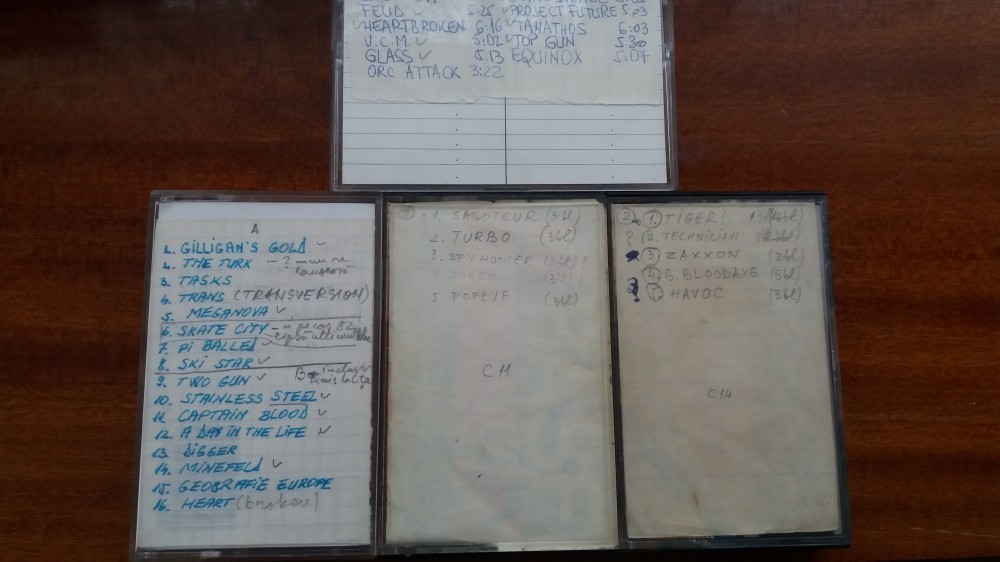 FEUD ✓ 5:25 ✓ PROJECT FUTURE 5:03
✓ HEARTBROKEN 6:16 ✓ TANATHOS 6:03
U.C.M. ✓ 5:02 ✓ TOP GUN 5:30
GLASS ✓ 5:13 EQUINOX 5:07
ORC ATTACK 3:22
A
1. GILLIGAN'S GOLD ✓
2. THE TURK - ? -
3. TASKS
4. TRANS (TRANSVERSION)
5. MEGANOVA ✓
6. SKATE CITY
7. PI BALLED ✓
8. SKI STAR ✓
9. TWO GUN ✓
10. STAINLESS STEEL ✓
11. CAPTAIN BLOOD ✓
12. A DAY IN THE LIFE ✓
13. DIGGER
14. MINEFELD ✓
15. GEOGRAFIE EUROPE
16. HEART (broken)
1. SABOTEUR (3bl)
2. TURBO (3bl)
3. SPY HUNTER
4. ZORRO
5 POPEYE (3bl)
C 11
2. 1. TIGER!
? 2. TECHNICIAN
3. ZAXXON (2bl)
4. B. BLOODAXE (5bl)
HAVOC (3bl)
C 14